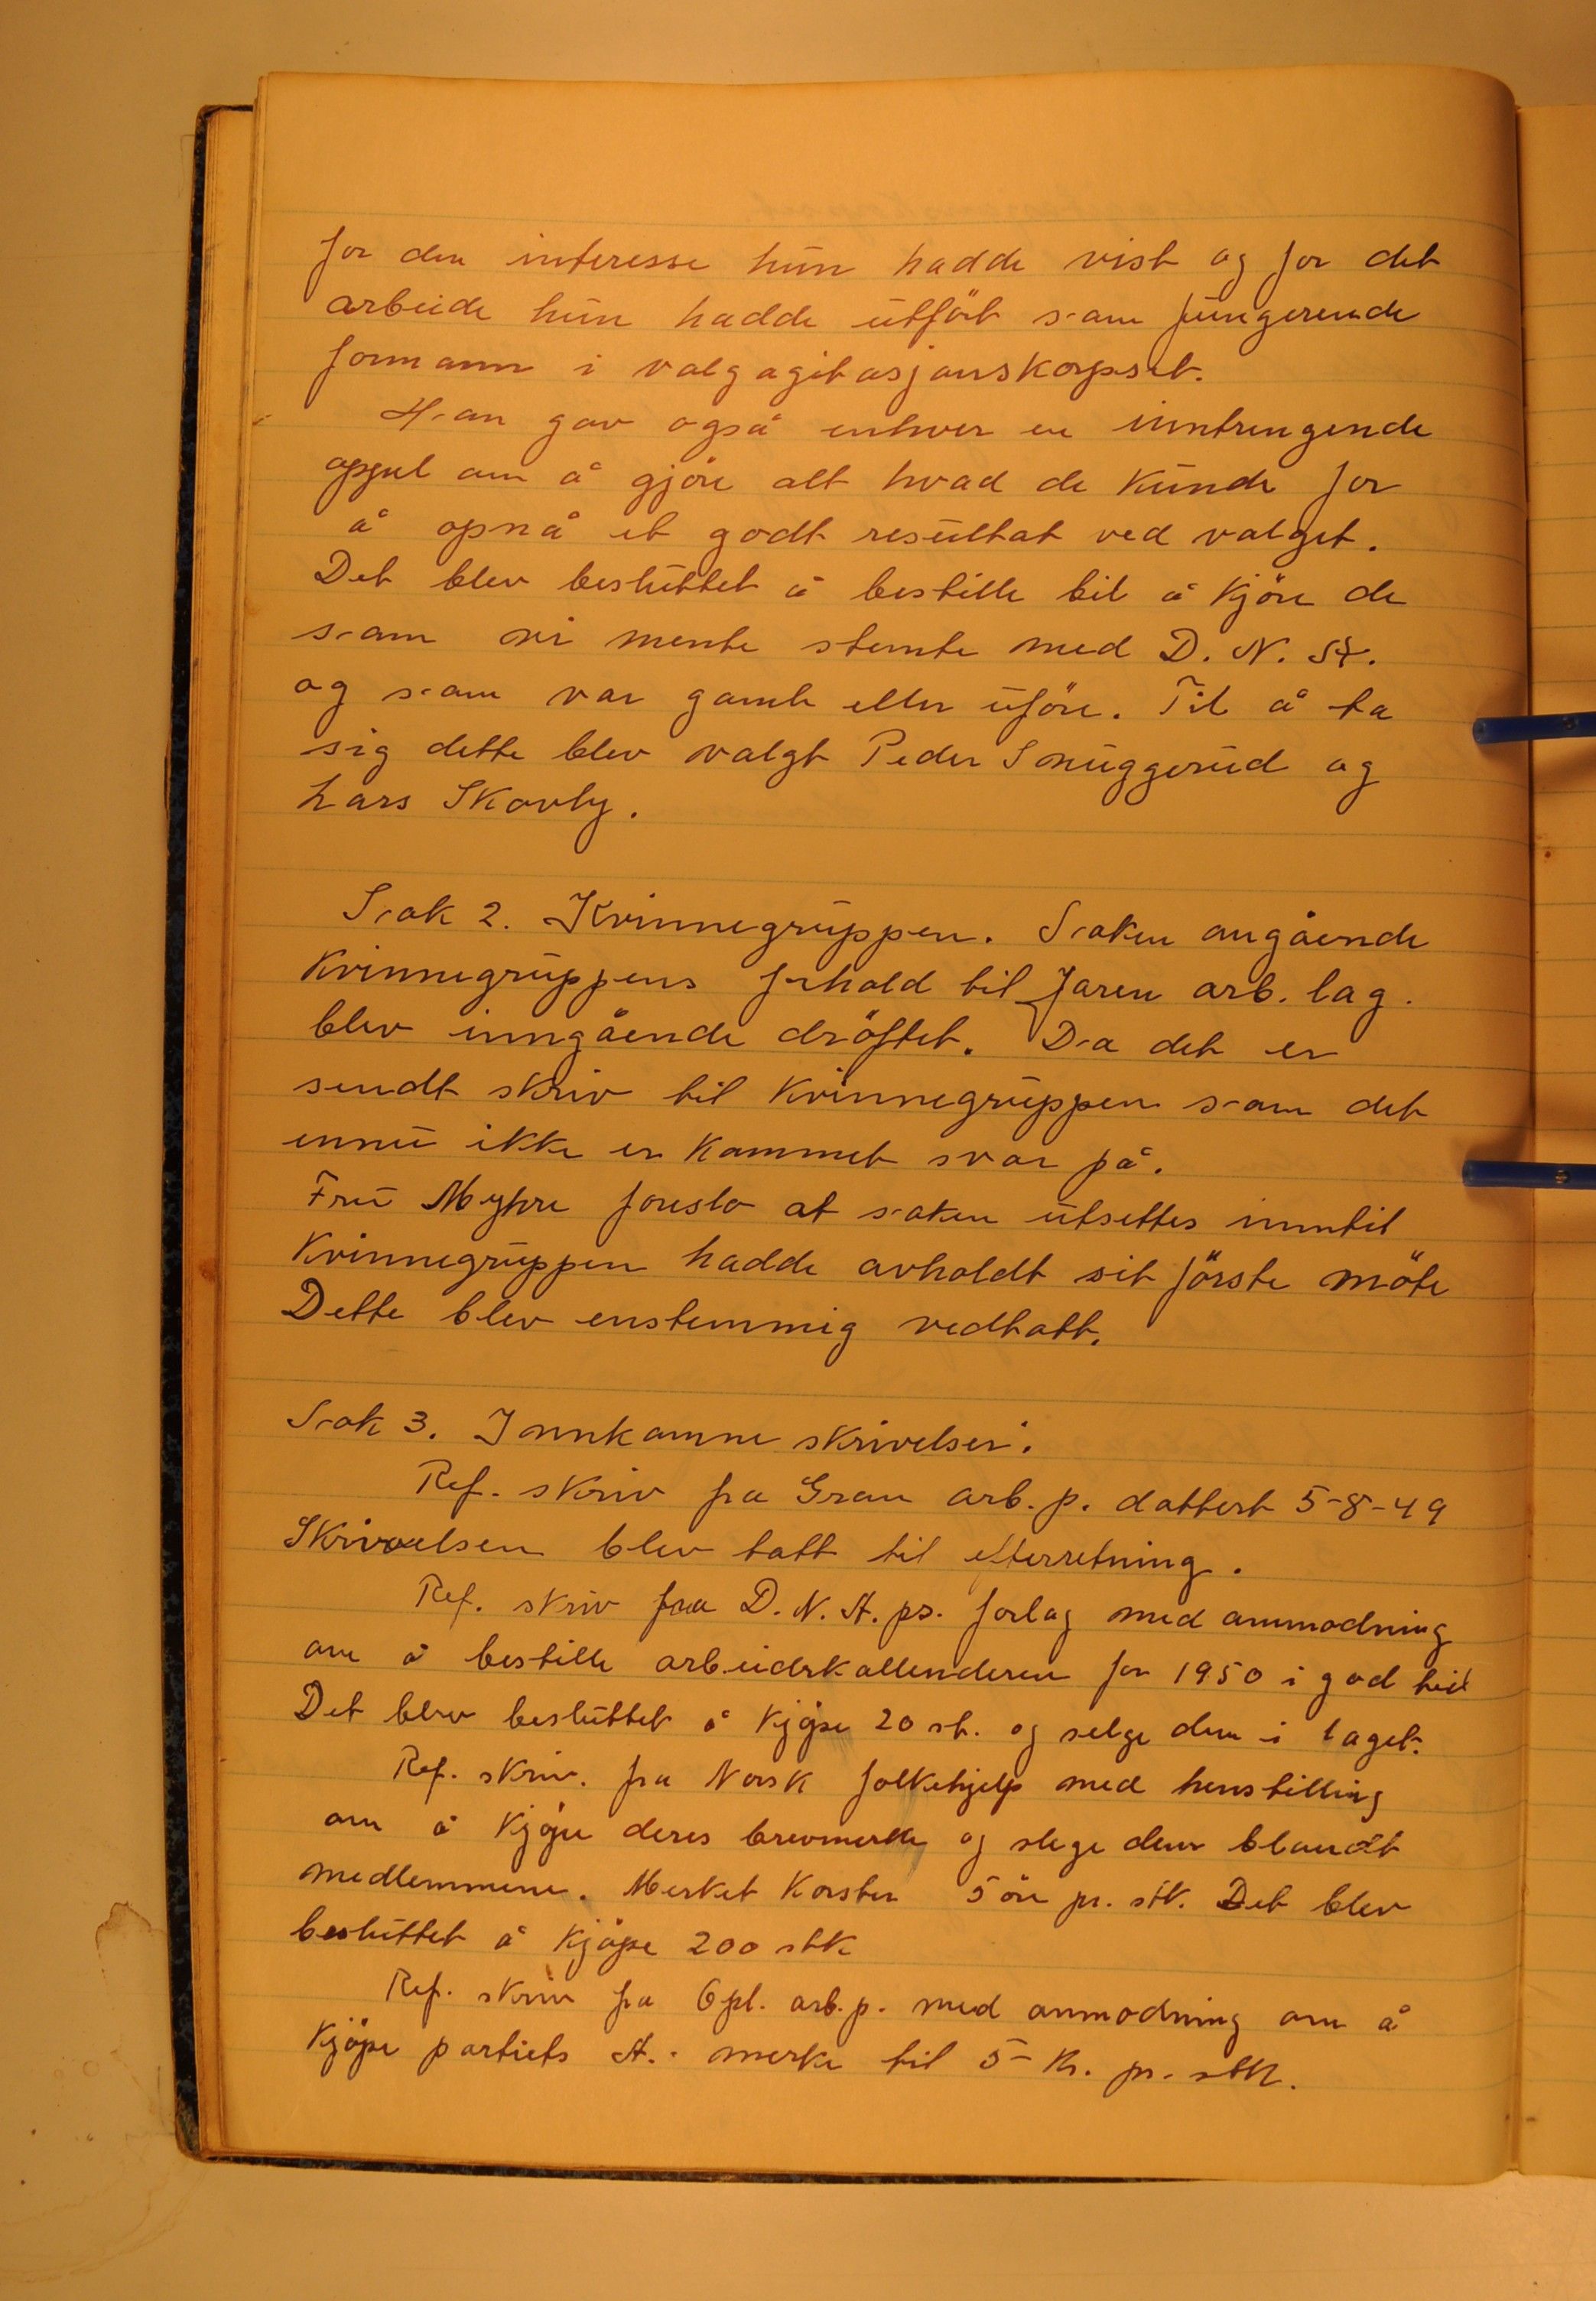 for den interesse hun hadde vist og for det
arbeide hun hadde utfört som fungerende
formann i valgagitasjonskorpset.
Han gav også enhver en inntrengende
appel om å gjöre alt hvad de kunde for
å opnå et godt resultat ved valget.
Det blev besluttet å bestille bil å kjöre de
som vi mente stemte med D. N. A.
og som var gamle eller uföre. Til å ta
sig dette blev valgt Peder Snuggerud og
Lars Skovly.
Sak 2. Kvinnegruppen. Saken angående
Kvinnegruppens forhold til Jaren arb. lag.
blev inngående dröftet. Da det er
sendt skriv til Kvinnegruppen som det
ennu ikke er kommet svar på.
Fru Myhre foreslo at saken utsettes inntil
Kvinnegruppen hadde avholdt sit förste möte
Dette blev enstemmig vedtatt.
Sak 3. Innkomne skrivelser.
Ref. skriv fra Gran arb. p. dattert 5-8-49
Skrivelsen blev tatt til efterretning.
Ref. skriv fra D. N. A. ps. forlag med anmodning
om å bestille arbeidskallenderen for 1950 i god tid
Det blev besluttet å kjöpe 20 st. og selge dem i laget.
Ref. skriv. fra Norsk folkehjelp med henstilling
om å kjöpe deres brevmerke og slege dem blandt
medlemmene. Merket koster 5 öre pr. stk. Det blev
besluttet å kjöpe 200 stk
Ref. skriv fra Opl. arb. p. med anmodning om å
kjöpe partiets A.- merke til 5- kr. pr. stk.